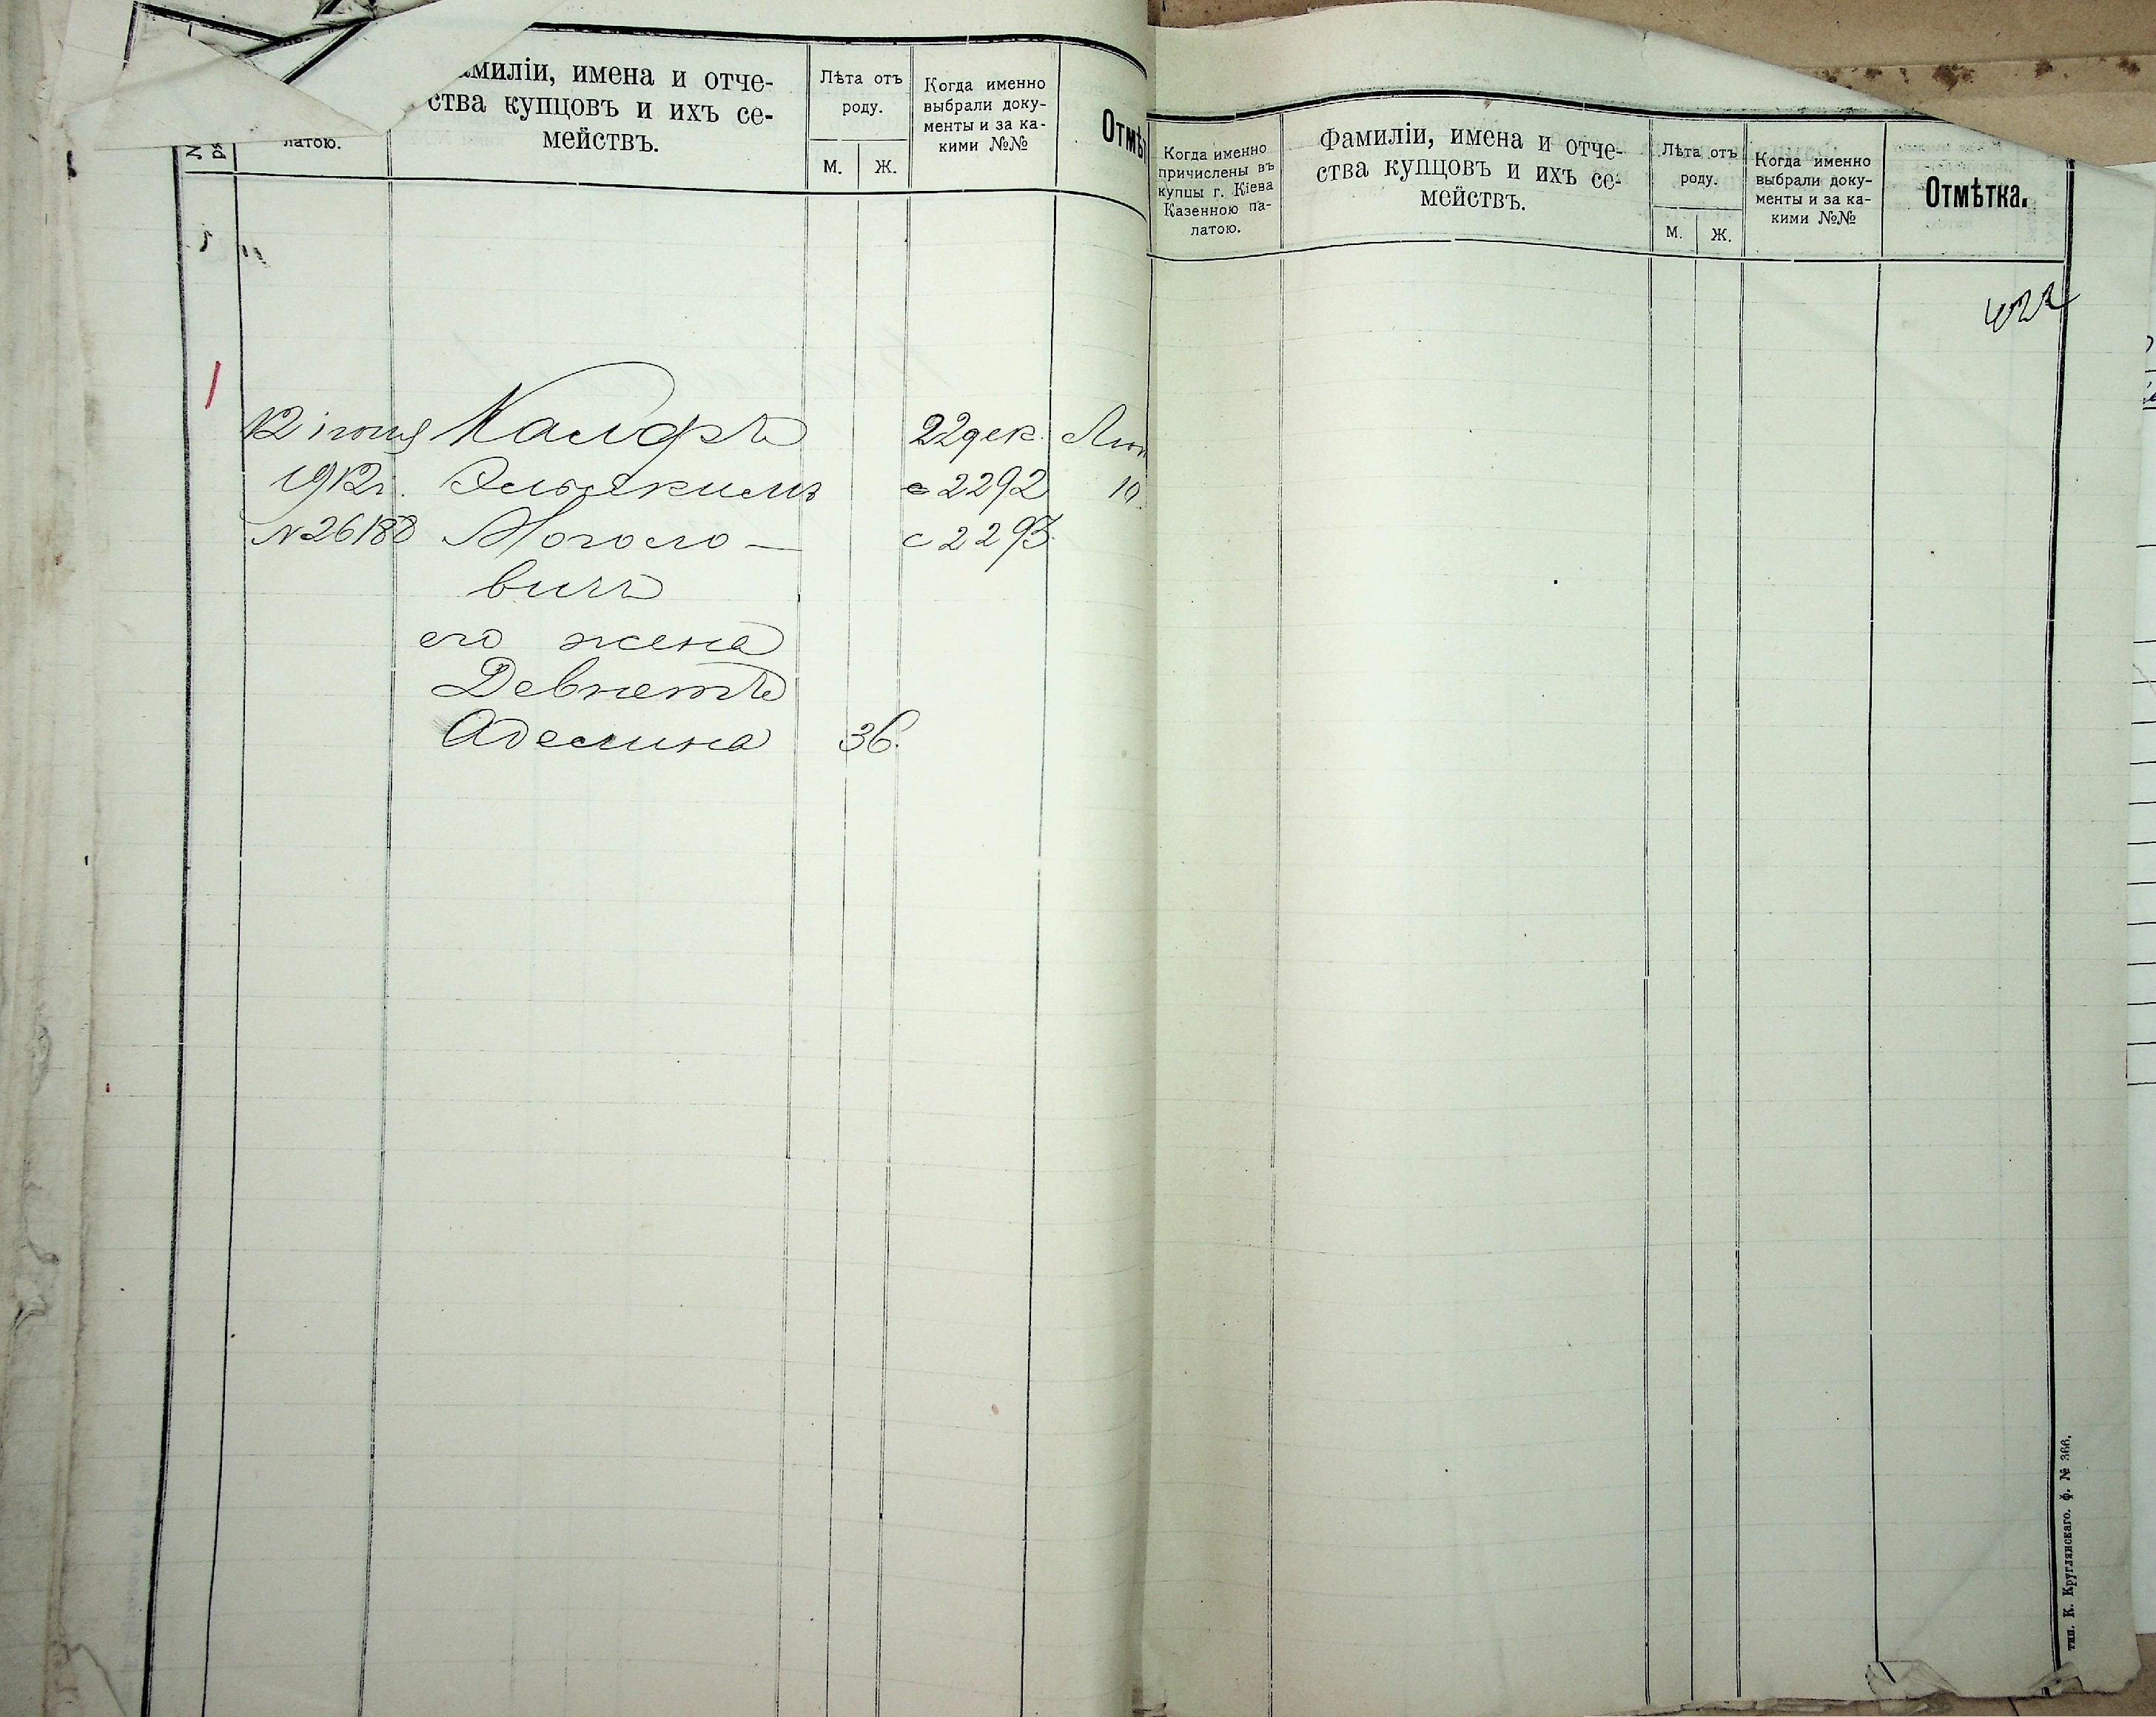 амиліи, имена и отче-
ства купцовъ и ихъ се-
мействъ.
Лѣта отъ
роду.
М.
Ж.
Когда именно
выбрали доку-
менты и за ка-
кими №№
Отмѣ
латою.
12 іюня
1912 г.
№ 26188
его жена
Аделина
36.
22 дек.
с 2292
с 2293
Когда именно
причислены въ
купцы г. Кіева
Казенною па-
латою.
Фамиліи, имена и отче-
ства купцовъ и ихъ се-
мействъ.
Лѣта отъ
роду.
М.
Ж.
Когда именно
выбрали доку-
менты и за ка-
кими №№
Отмѣтка.
422
тип. К. Круглянскаго. ф. № 366.